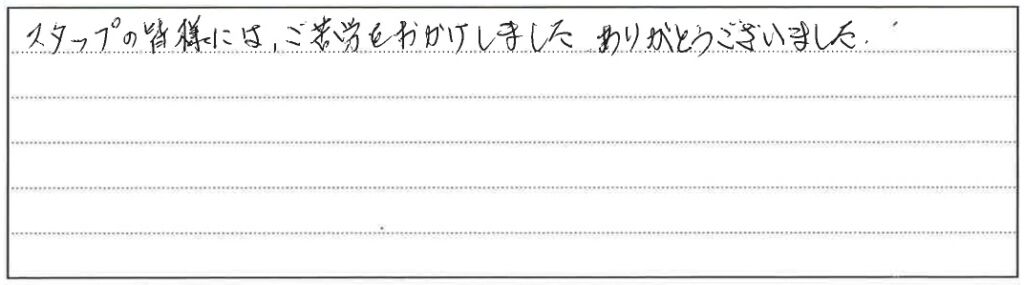 スタップの皆様には、ご苦労をおかけしました ありがとうございました.